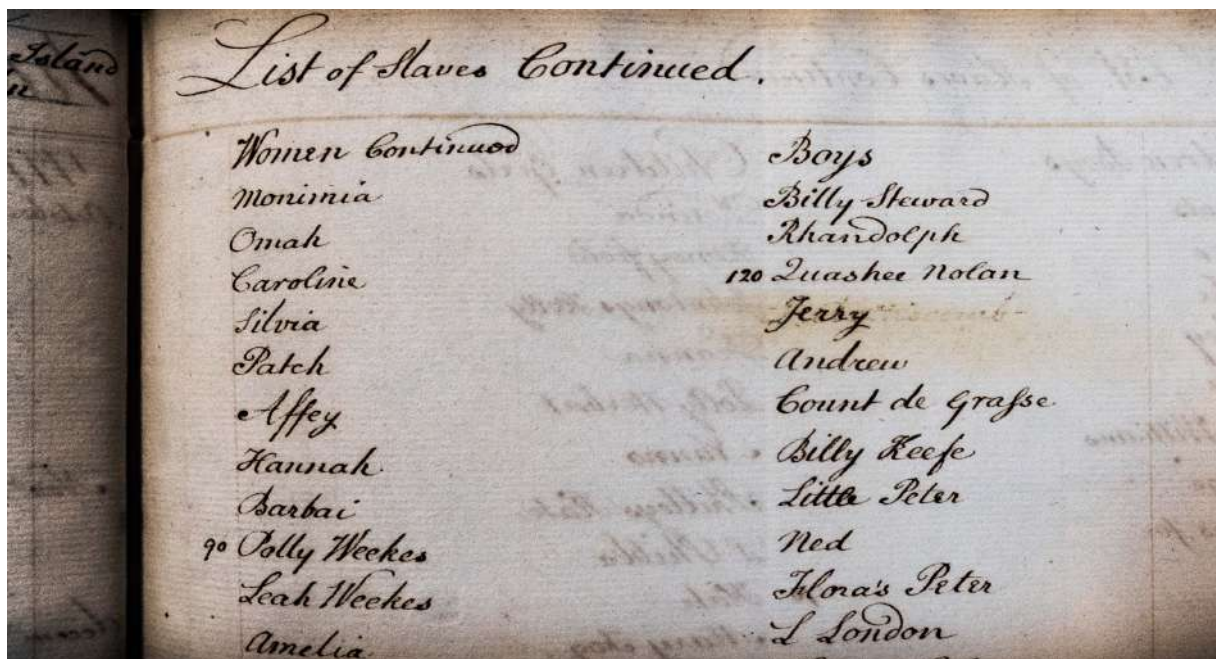 Island
List of Slaves Continued.
Women Continued
Monimia
Omah
Caroline
Silvia
Patch
Affey
Hannah
Barbai
90 Polly Weekes
Leah Weekes
Amelia
Boys
Billy Steward
Rhandolph
120 Quashee Nolan
Jerry
Andrew
Count de Grasse
Billy Keefe
Little Peter
Ned
Flora's Peter
L London